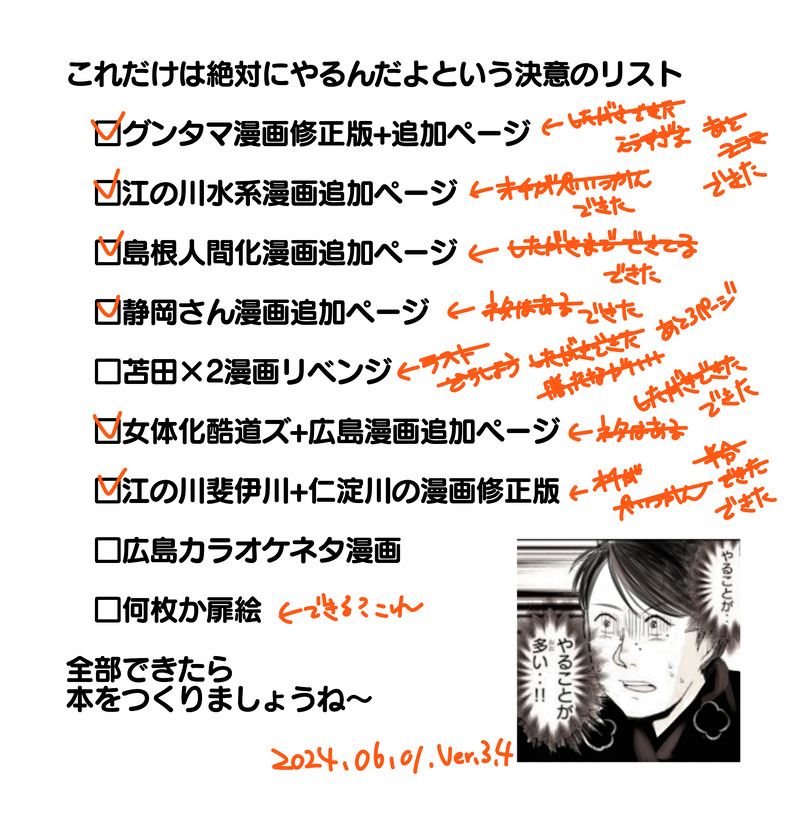 これだけは絶対にやるんだよという決意のリスト
☑グンタマ漫画修正版+追加ページ ←したがきできた あと
2コマ
できた
☑江の川水系漫画追加ページ ←オチがみつかんん
できた
☑島根人間化漫画追加ページ ←したがきまでできてる
できた
☑静岡さん漫画追加ページ ←ネタはある できた
□苫田×2漫画リベンジ ←ラスト どうしよう したがきできた あと3ページ
☑女体化酷道ズ+広島漫画追加ページ ←ネタはある したがきできた
できた
☑江の川斐伊川+仁淀川の漫画修正版 ←オチが 半分
できた
できた
□広島カラオケネタ漫画
□何枚か扉絵 ←できる?これ
全部できたら
本をつくりましょうね〜
やることが‥
やることが
多い‥!!
おお
2024.06.01.Ver.3.4